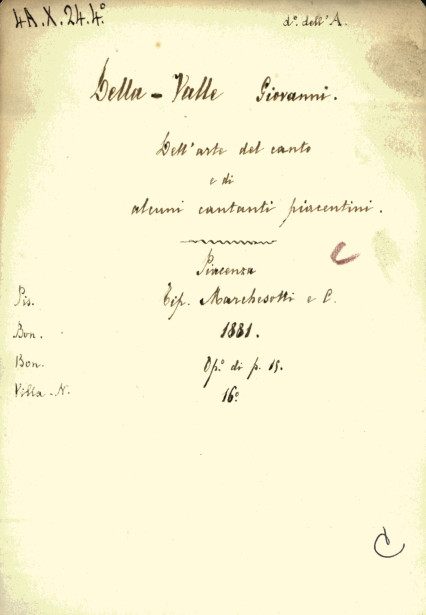 4A.X.24.4°
d°. dell'A.
Della-Valle Giovanni.
Dell'arte del canto
e di
alcuni cantanti piacentini.
Piacenza
Pis. Tip. Marchesotti e C.
Bon. 1881.
Bon. Op.° di p. 15.
Villa-N. 16°
C